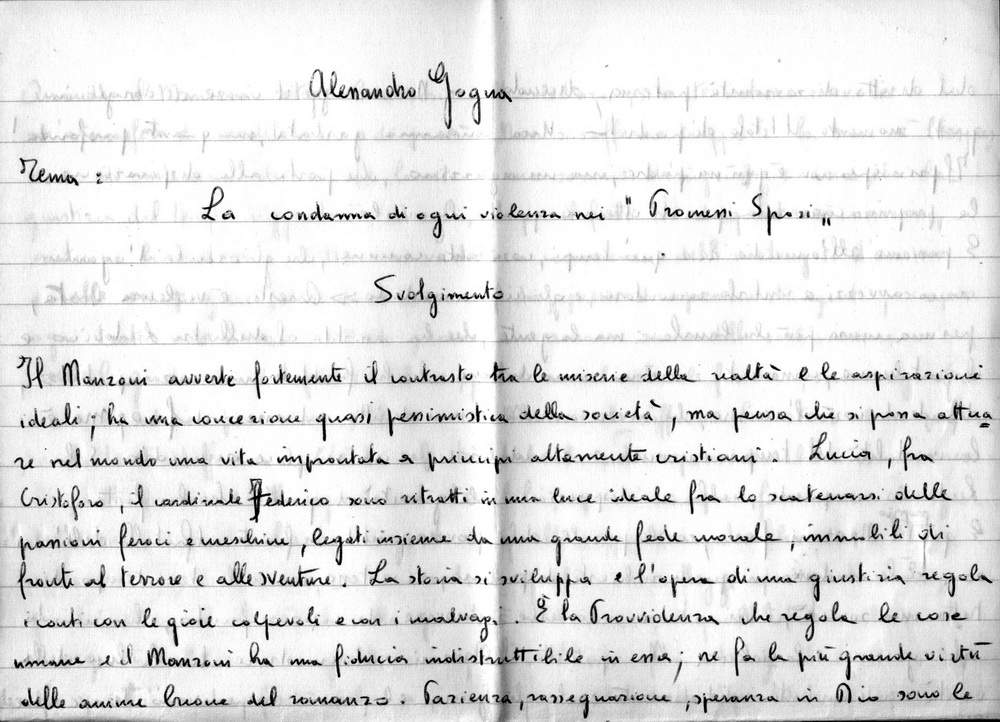 Alessandro Gogna
Tema :
La condanna di ogni violenza nei "Promessi Sposi"
Svolgimento
Il Manzoni avverte fortemente il contrasto tra le miserie della realtà e le aspirazioni
ideali; ha una concezione quasi pessimistica della società, ma pensa che si possa attua
re nel mondo una vita improntata a principi altamente cristiani. Lucia, fra
Cristoforo, il cardinale Federico sono ritratti in una luce ideale fra lo scatenarsi delle
passioni feroci e meschine, legati insieme da una grande fede morale, immobili di
fronte al terrore e alle sventure. La storia si sviluppa e l'opera di una giustizia regola
i conti con le gioie colpevoli e con i malvagi. È la Provvidenza che regola le cose
umane e il Manzoni ha una fiducia indistruttibile in essa; ne fa la più grande virtù
delle anime buone del romanzo. Pazienza, rassegnazione, speranza in Dio sono le